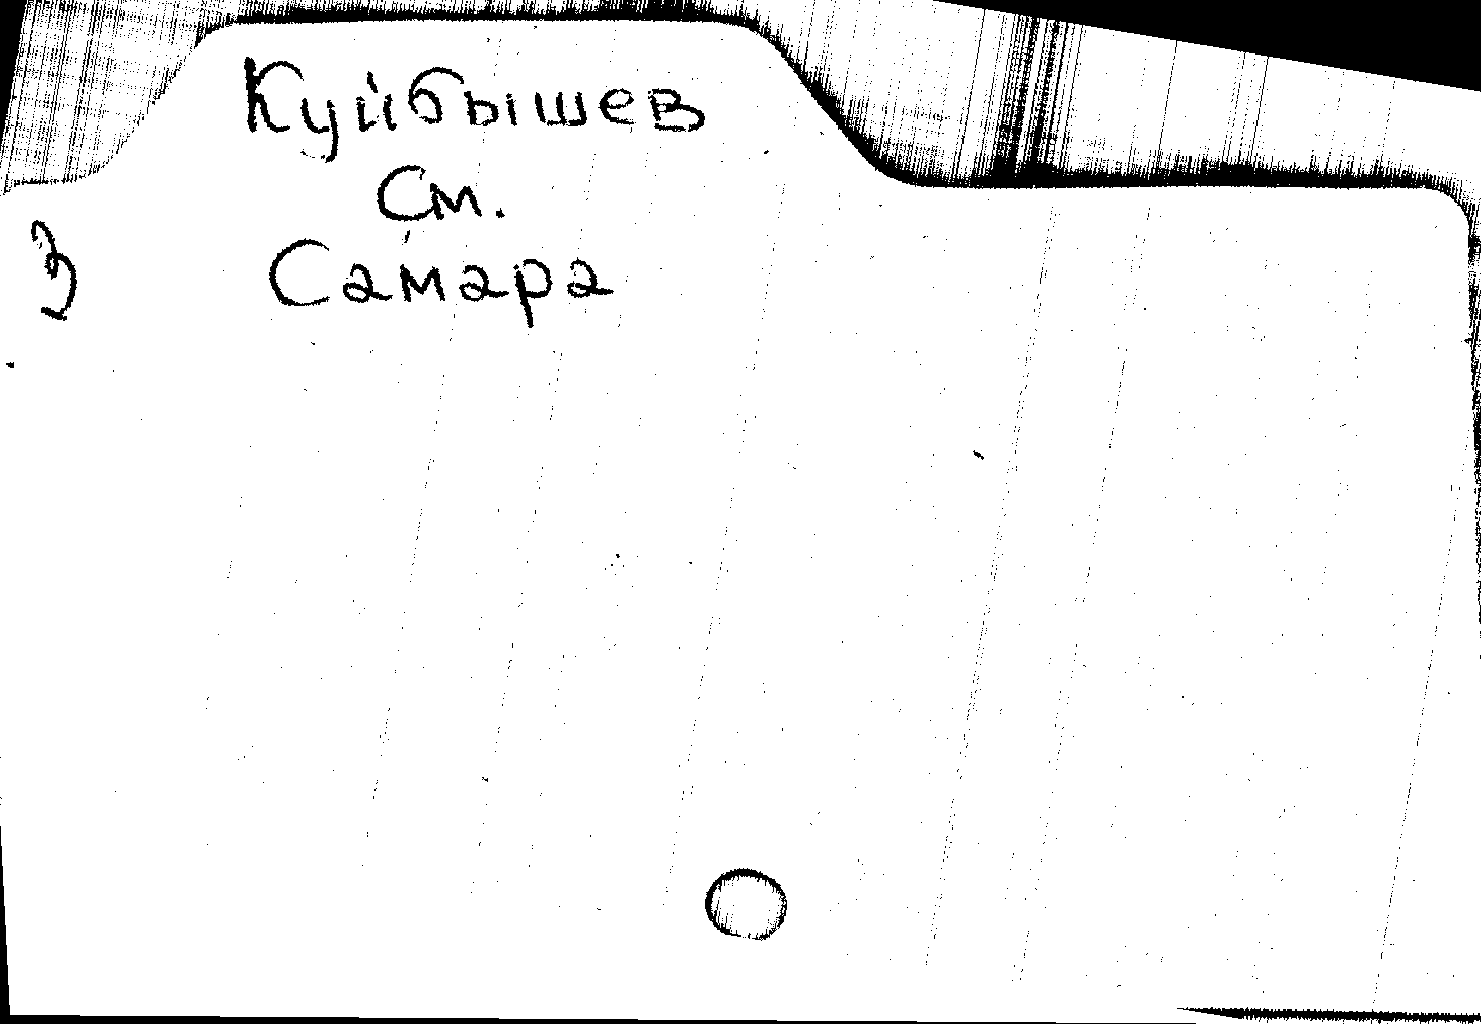 Куйбышев
См.
Самара
З